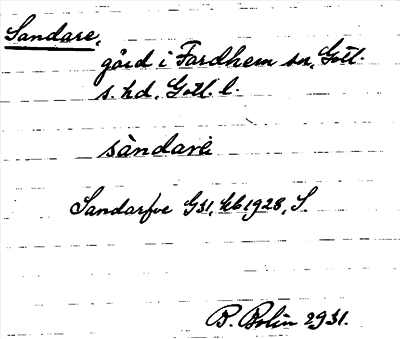 Sandare,
gård i Fardhem sn, Gotl.
s. hd, Gotl. l.
sàndarè
Sandarfve GSI, kb 1928, S.
B. Bolin 1931.